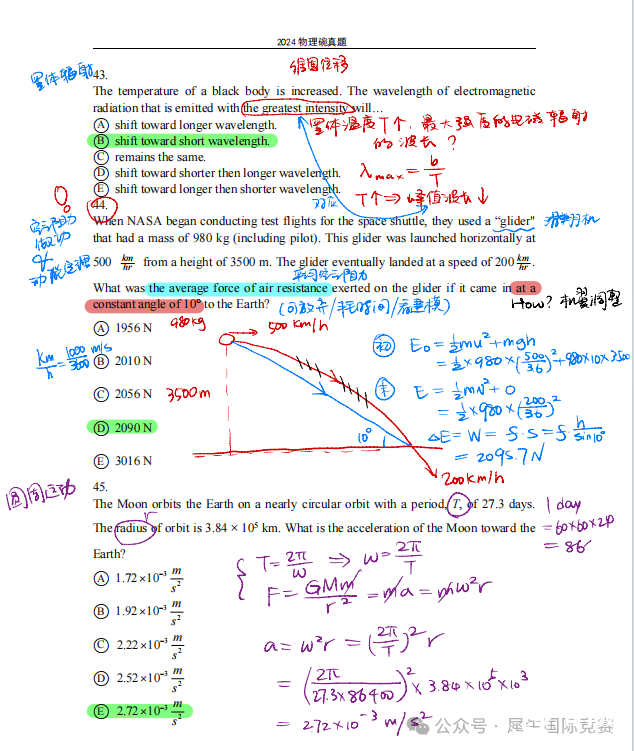 2024 物理碗真题
黑体辐射
维恩位移
43.
The temperature of a black body is increased. The wavelength of electromagnetic
radiation that is emitted with the greatest intensity will…
Ⓐ shift toward longer wavelength.
黑体温度T个，最大强度的电磁辐射
的波长？
Ⓑ shift toward short wavelength.
Ⓒ remains the same.
Ⓓ shift toward shorter then longer wavelength.
Ⓔ shift toward longer then shorter wavelength.
λmax = b/T
T↑ ⇒ 峰值波长↓
对应
44.
空气阻力
做功
&
动能定理
When NASA began conducting test flights for the space shuttle, they used a “glider"
滑翔机
that had a mass of 980 kg (including pilot). This glider was launched horizontally at
500 km/hr from a height of 3500 m. The glider eventually landed at a speed of 200 km/hr.
平均空气阻力
What was the average force of air resistance exerted on the glider if it came in at a
constant angle of 10° to the Earth?
(可放弃/耗时间/需建模)
How? 机翼调整
Ⓐ 1956 N
980kg
500 km/h
km/h = 1000/3600 m/s
Ⓑ 2010 N
Ⓒ 2056 N
3500m
Ⓓ 2090 N
Ⓔ 3016 N
10°
200km/h
初 E₀ = ½mu² + mgh
= ½×980×(500/3.6)² + 980×10×3500
末 E = ½mv² + 0
= ½×980×(200/3.6)²
ΔE = W = f·s = f·h/sin10°
= 2095.7N
45.
圆周运动
The Moon orbits the Earth on a nearly circular orbit with a period, T, of 27.3 days.
The radius of orbit is 3.84 × 10⁵ km. What is the acceleration of the Moon toward the
Earth?
r
1 day
= 60×60×24
= 864
Ⓐ 1.72×10⁻³ m/s²
Ⓑ 1.92×10⁻³ m/s²
Ⓒ 2.22×10⁻³ m/s²
Ⓓ 2.52×10⁻³ m/s²
Ⓔ 2.72×10⁻³ m/s²
T = 2π/ω ⇒ ω = 2π/T
F = GMm/r² = ma = mω²r
a = ω²r = (2π/T)² r
= (2π/27.3×86400)² × 3.84×10⁵×10³
= 2.72×10⁻³ m/s²
公众号 · 犀牛国际竞赛